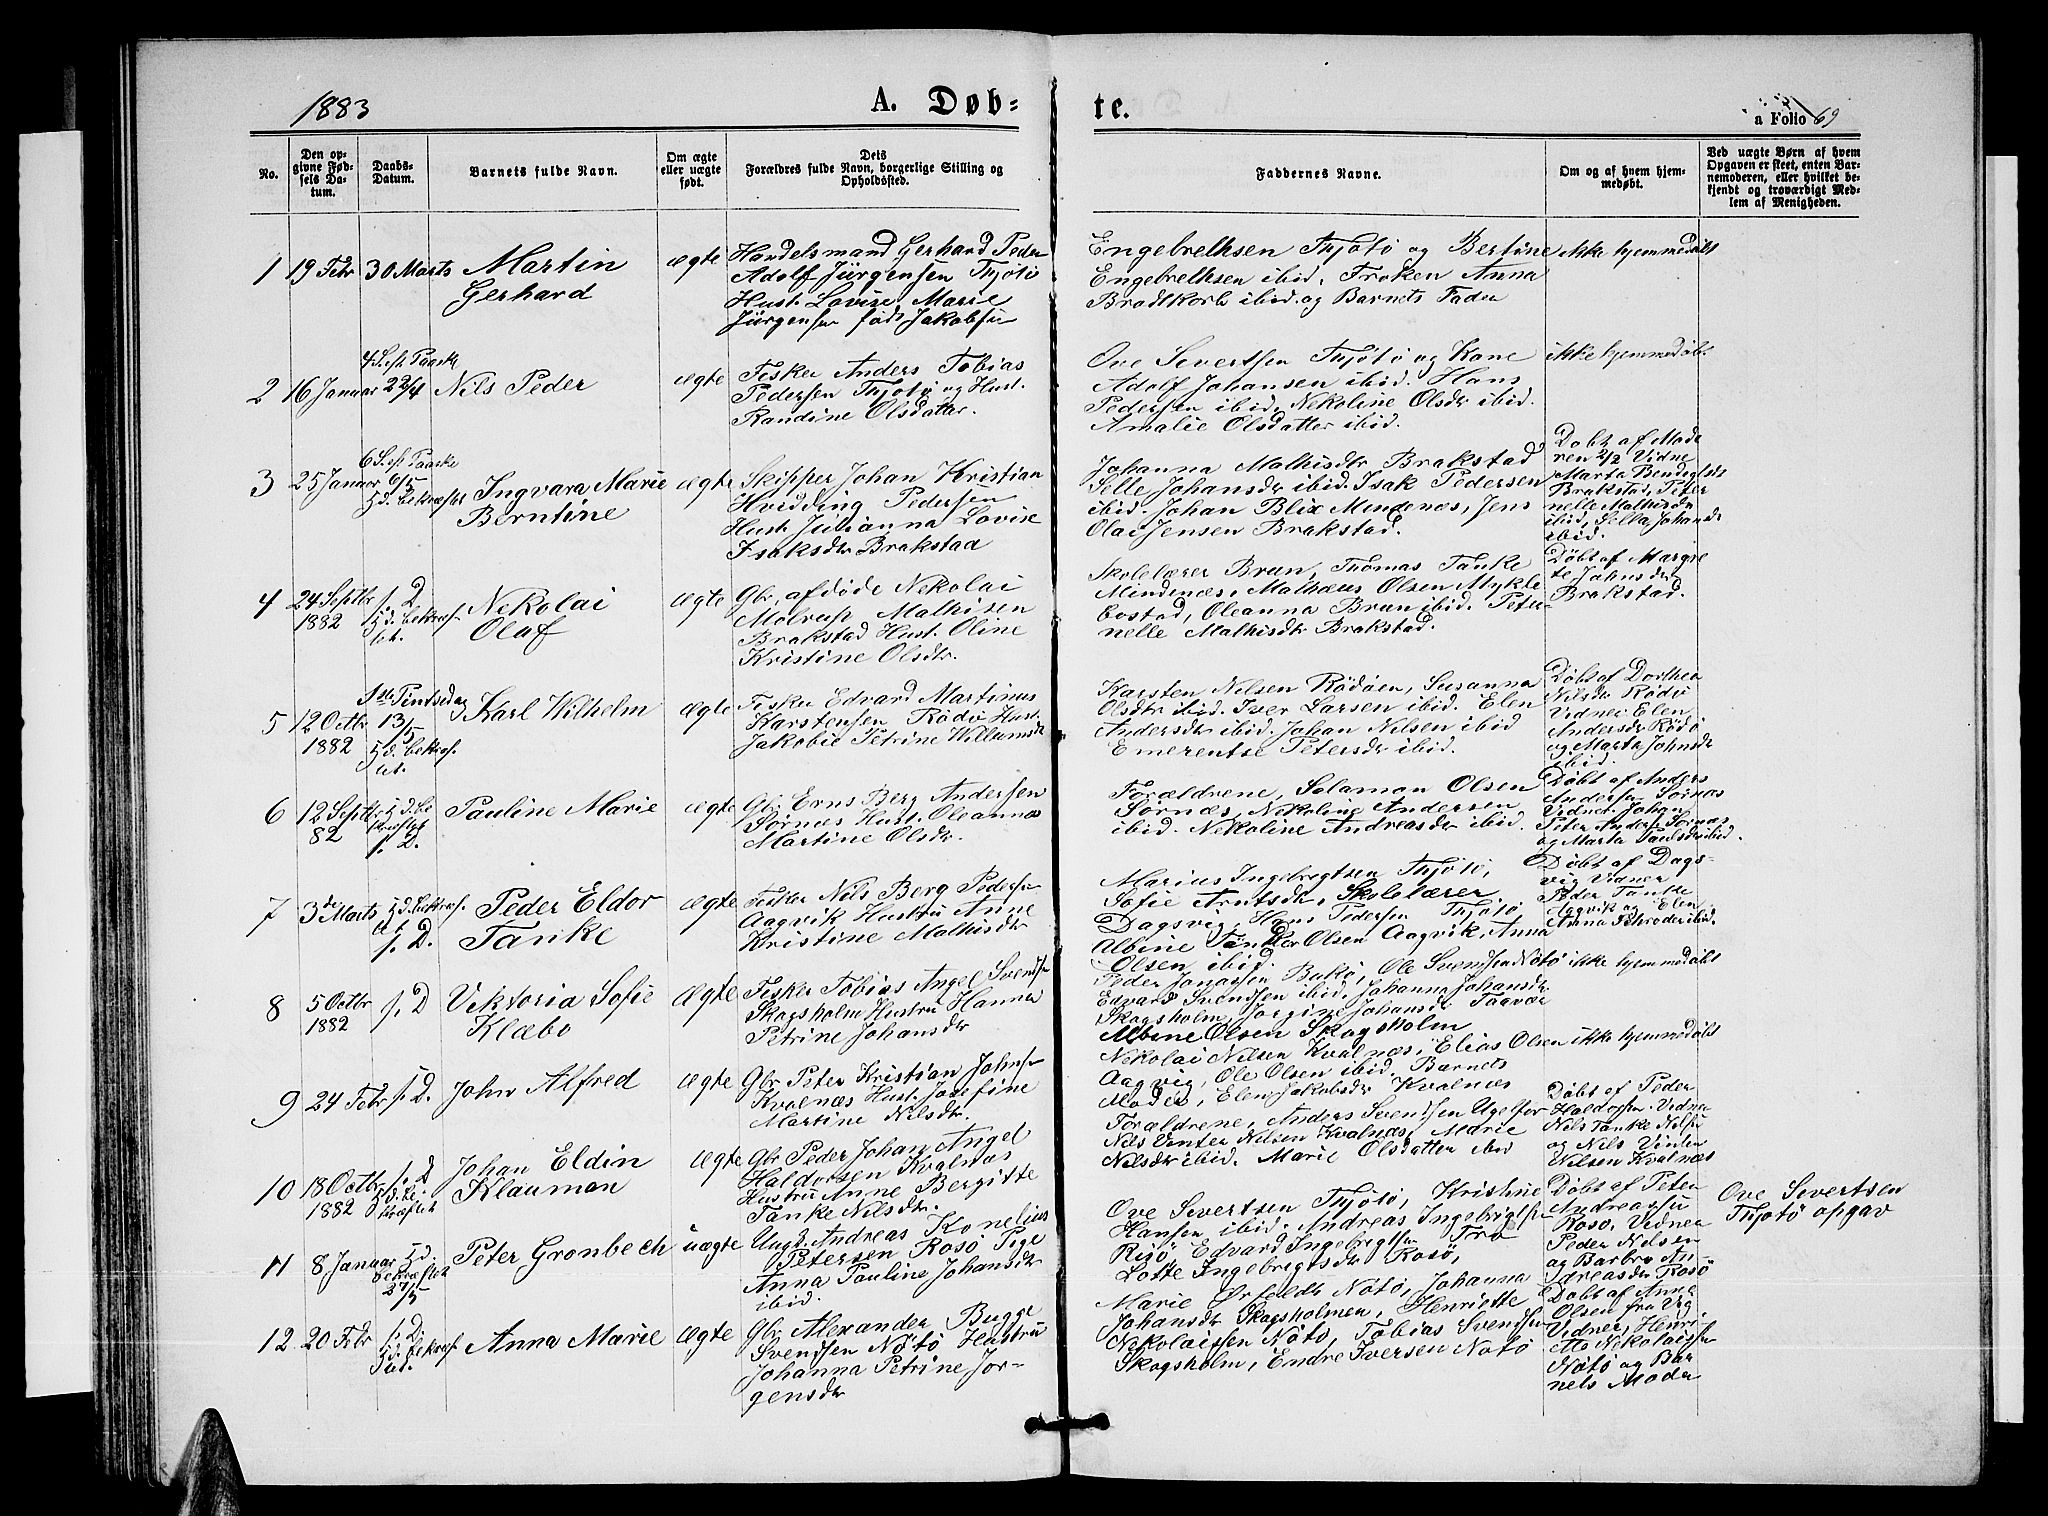 1883
A. Døb-
te.
a Folio 69
No.
Den op-
givne Fød-
sels Da-
tum.
Daabs-
Datum.
Barnets fulde Navn.
Om ægte
eller uægte
født.
Dets
Forældres fulde Navn, borgerlige Stilling og
Opholdssted.
Faddernes Navne.
Om og af hvem hjem-
medøbt.
Ved uægte Børn af hvem
Opgaven er skeet, enten Bar-
nemoderen, eller hvilket be-
kjendt og troværdigt Med-
lem af Menigheden.
1
19 Febr
30 Marts
Martin
Gerhard
ægte
Handelsmand Gerhard Peder
Adolf Jürgensen Thjøtø
Hust. Lovise Marie
Jürgensen født Jakobsen
Engebrethsen Thjøtø og Bertine
Engebrethsen ibid. Frøken Anna
Bradtkorb ibid. og Barnets Fader
ikke hjemmedøbt
2
16 Januar
4 S. eft Paaske
22/4
Nils Peder
ægte
Fisker Anders Tobias
Pedersen Thjøtø og Hust.
Randine Olsdatter.
Ove Severtsen Thjøtø og Kone
Adolf Johansen ibid. Hans
Pedersen ibid, Nekoline Olsdr ibid.
Amalie Olsdatter ibid.
ikke hjemmedøbt
3
25 Januar
6 S. eft Paaske
6/5
Hd. bekræftet
Ingvara Marie
Berntine
ægte
Skipper Johan Kristian
Hvidding Pedersen
Hust Julianna Lovise
Isaksdr Brakstad
Johanna Mathisdtr Brakstad
Selle Johansdr ibid. Isak Pedersen
ibid. Johan Blix Mindenæs, Jens
Olai Jensen Brakstad.
Døbt af Mode
ren 2/2 Vidne
Marta Bendigtsdr
Brakstad, Peter
nelle Mathisdr
ibid, Sella Johansdr
ibid.
4
24 Septbr
1882
s. D
Hd. bekræf-
tet.
Nekolai
Olaf
ægte
Gbr. afdøde Nekolai
Molrup Mathisen
Brakstad Hust. Oline
Kristine Olsdr.
Skolelærer Brun, Thomas Tanke
Mindenæs, Mathæus Olsen Mykle
bostad, Oleanna Brun ibid. Peter-
nelle Mathisdr Brakstad.
Døbt af Margre
te Johnsdr
Brakstad.
5
12 Octbr
1882
1ste Pintsedag
13/5
Hd. bekræf-
tet.
Karl Wilhelm
ægte
Fisker Edvard Martinus
Karstensen Rødø Hust.
Jakobie Petrine Willumsdr
Karsten Nilsen Rødøen, Susanna
Olsdtr ibid. Iver Larsen ibid. Elen
Andersdr ibid. Johan Nilsen ibid
Emerentse Petersdr ibid.
Døbt af Dorthea
Nilsdr Rødø
Vidner Elen
Andersdr Rødø
og Marta Johnsdr
ibid.
6
12 Septbr
82
Hd. be
kræftet
s. D.
Pauline Marie
ægte
Gbr. Erns Berg Andersen
Sørnæs Hust. Oleanna
Martine Olsdr.
Forældrene, Salamon Olsen
Sørnæs, Nekoline Andersen
ibid. Nekoline Andreasdr ibid.
Døbt af Anders
Andersen Sørnæs
Vidner Johan
Peter Anders. Sørnæs
og Marta Paulsdr ibid.
7
3de Marts
Hd. bekræf.
et
s. D.
Peder Eldor
Tanke
ægte
Fisker Nils Berg Pedersen
Aagvik Hustru Anne
Kristine Mathisdr
Marius Ingebrigtsen Thjøtø,
Sofie Arntsdr, Skolelærer
Dagsvig, Hans Pedersen Thjøtø
Albine Tanke Olsen Aagvik, Anna
Olsen ibid.
Døbt af Dags-
vig Vidner
Peder Tanke
Aagvik og Elen
Anna Schrøder ibid.
8
5 Octbr
1882
s. D
Viktoria Sofie
Klæbo
ægte
Fisker Tobias Angel Svendsen
Skagsholm Hustru Hanna
Petrine Johansdr
Peder Jonassen Bukø, Ole Svendsen Nøtø
Edvard Svendsen ibid, Johanna Johansdr
Skogsholm, Jørgine Johansdr Tagvær
Albine Olsen Skagsholm
ikke hjemmedøbt
9
24 Febr
s. D.
John Alfred
ægte
Gbr Peter Kristian Johnsen
Kvalnæs Hust. Josefine
Martine Nilsdr.
Nekolai Nilsen Kvalnæs, Elias Olsen
Aagvig, Ole Olsen ibid. Barnets
Moder, Elen Jakobsdr Kvalnæs
ikke hjemmedøbt
10
18 Octbr
1882
s. D
Hd. be-
kræftet
Johan Eldin
Klauman
ægte
Gbr Peder Johan Angel
Haldorsen Kvalnæs
Hustru Anne Bergitte
Tanke Nilsdr.
Forældrene, Anders Svendsen Ugelfor
Nils Vinter Nilsen Kvalnæs, Marie
Nilsdr ibid. Marie Olsdatter ibid
Døbt af Peder
Haldorsen. Vidner
Nils Tanke Nilsen
og Nils Vinter
Nilsen Kvalnæs
11
8 Januar
Hd.
bekræftet
27/5
Peter Grønbech
uægte
Ungk. Andreas Konelius
Petersen Rosø Pige
Anna Pauline Johansdr
ibid.
Ove Severtsen Thjøtø, Kristine
Hansen ibid. Andreas Ingebrigtsen
Risø, Edvard Ingebrigtsen Tro
Lotte Ingebrigtsdr Rosø,
Døbt af Peter
Andreassen
Rosø. Vidner
Peder Nilsen
og Barbro An-
dreasdr Rosø
Ove Severtsen
Thjøtø opgav
12
20 Febr
s. D.
Hd. bekræf-
tet.
Anna Marie
ægte
Gbr Alexander Bugge
Svendsen Nøtø Hustru
Johanna Petrine Jør-
gensdr
Marie Ørfeldt Nøtø, Johanna
Johansdr Skagsholmen, Henriette
Nekolaissen Nøtø, Tobias Svendsen
Skagsholm, Endre Iversen Nøtø
Døbt af Anna
Olsen fra Vig
Vidner, Henri-
ette Nekolaissen
Nøtø og Bar
nets Moder